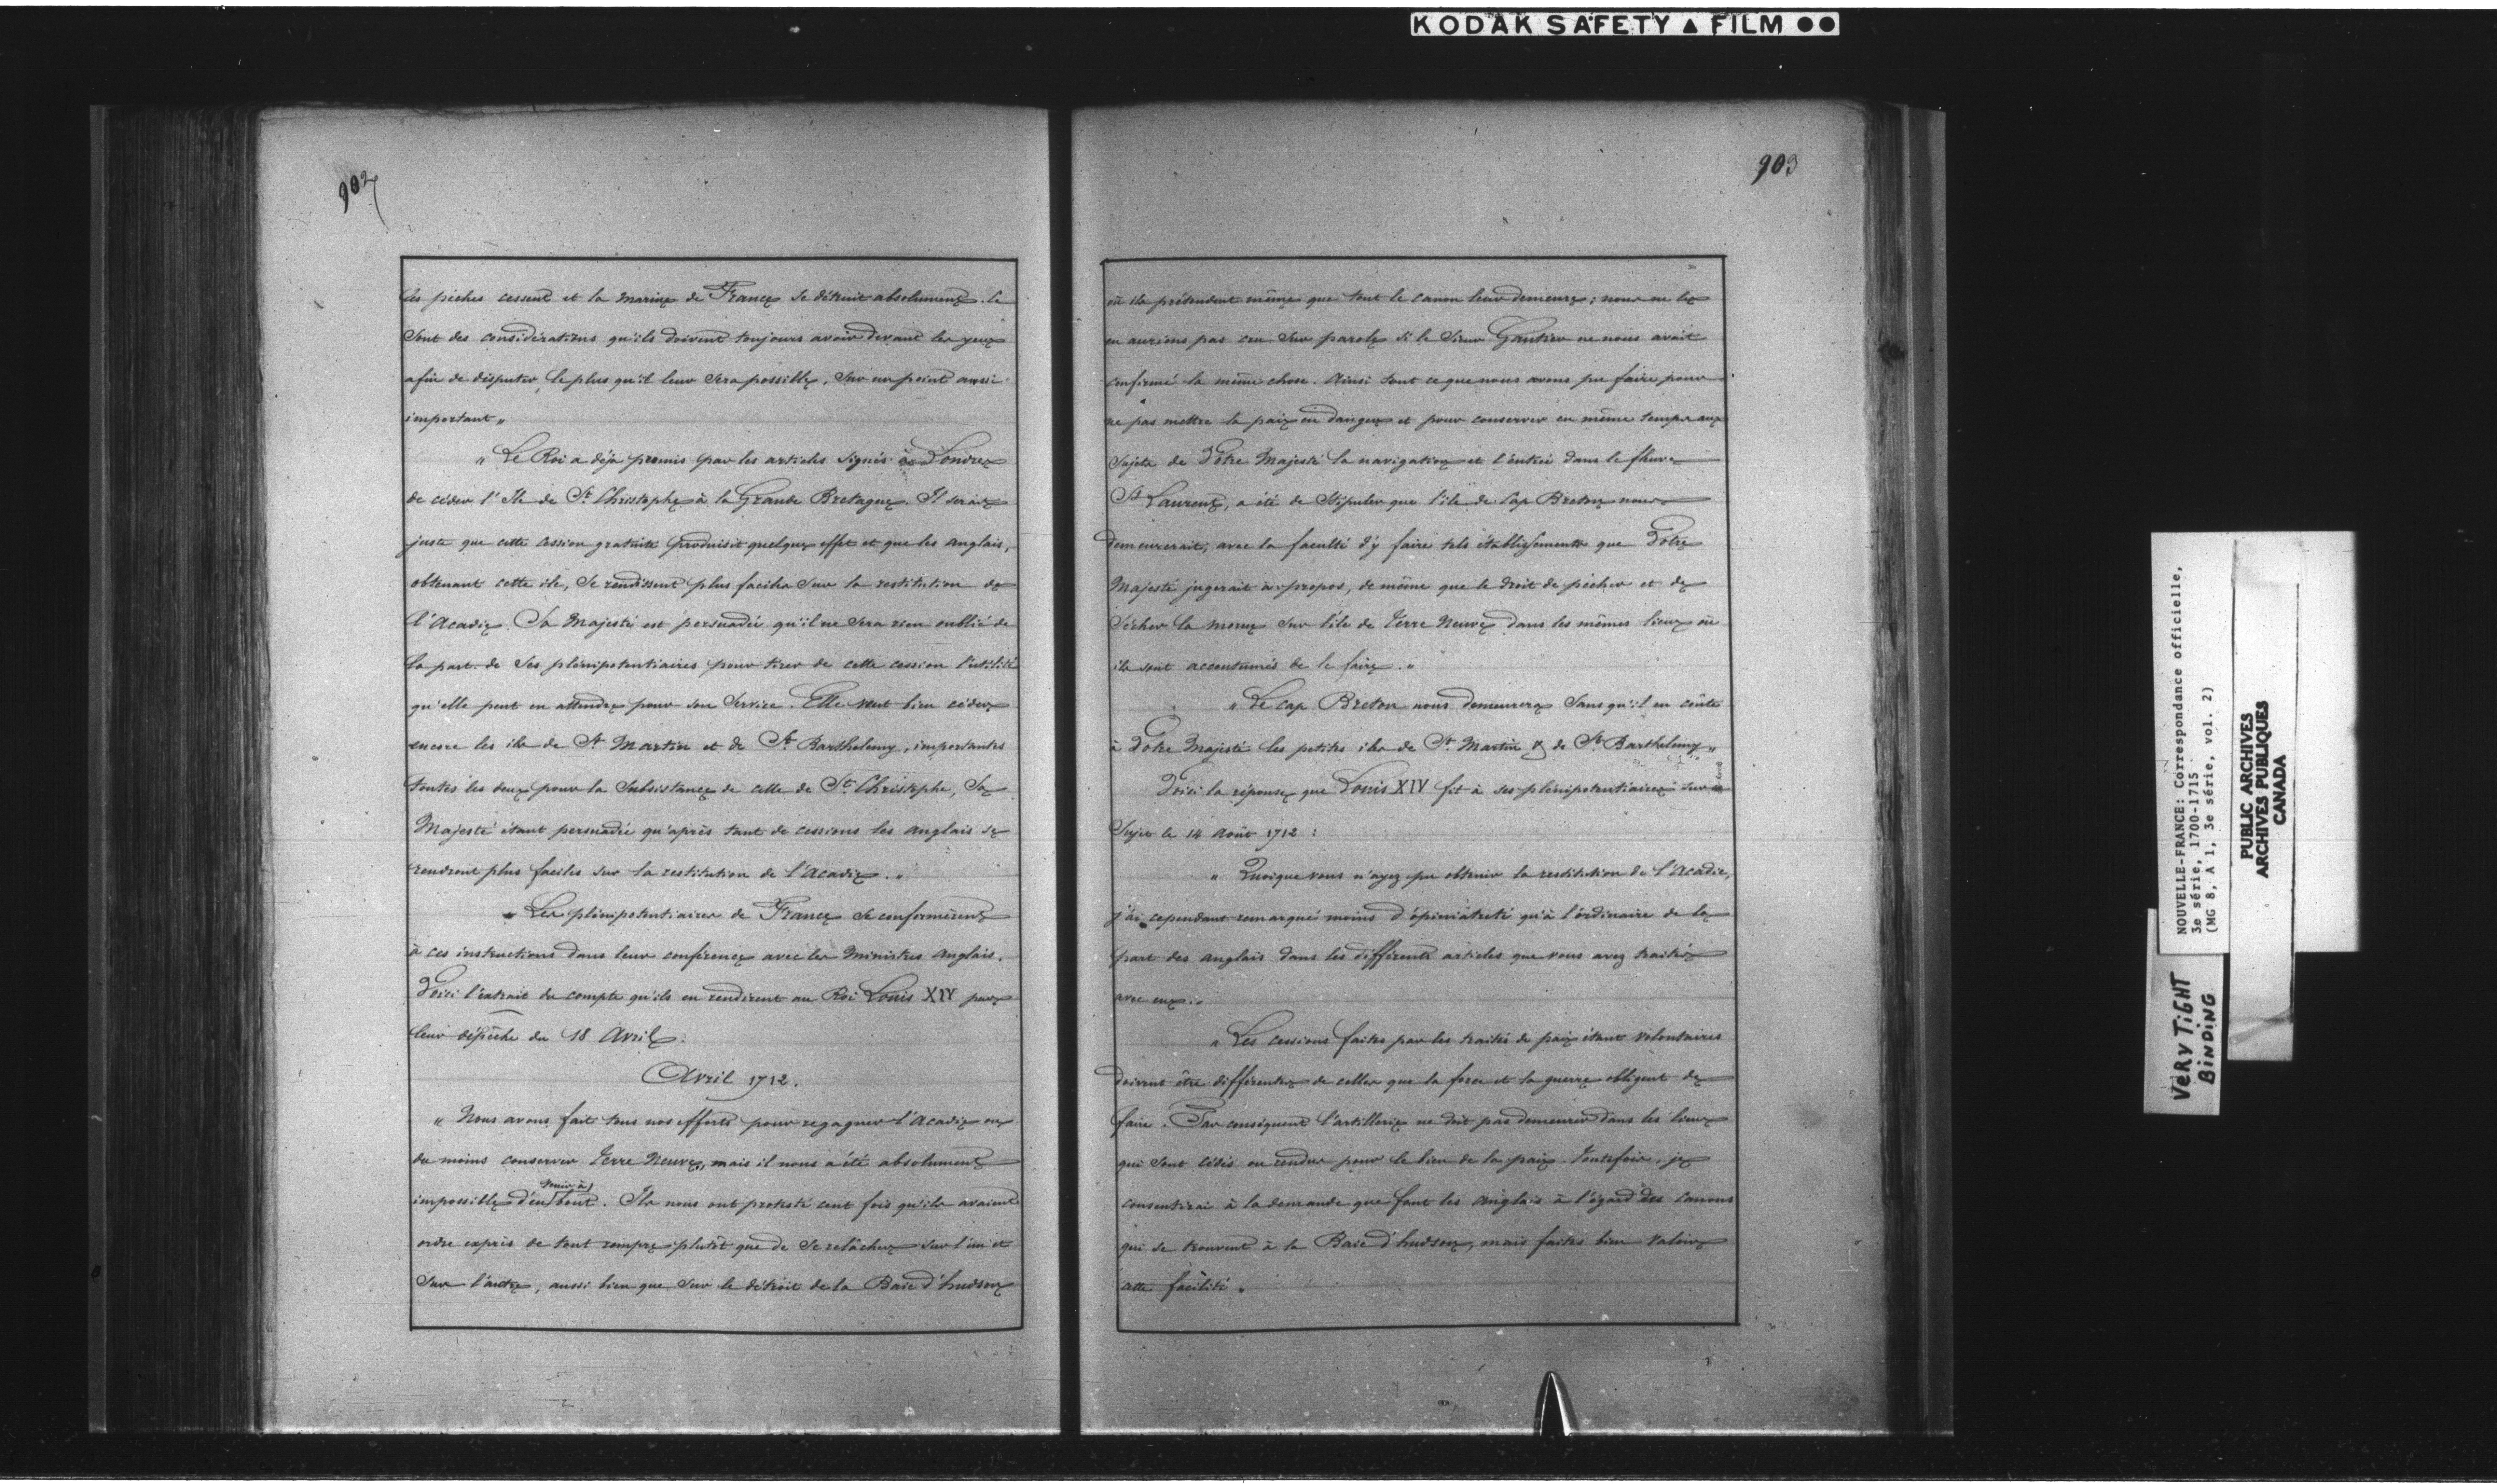 KODAK SAFETY ▲ FILM ●●
902
les pêches cessent et la marine de France se détruit absolument. Ce
sont des considérations qu'ils doivent toujours avoir devant les yeux
afin de disputer, le plus qu'il leur sera possible, sur un point aussi
important „
„ Le Roi a déja promis par les articles signés à Londres
de céder l'Ile de St Christophe à la Grande Bretagne. Il serait
juste que cette cession gratuite produisit quelque effet et que les anglais,
obtenant cette ile, se rendissent plus faciles sur la restitution de
l'Acadie. Sa Majesté est persuadée qu'il ne sera rien oublié de
la part de ses plénipotentiaires pour tirer de cette cession l'utilité
qu'elle peut en attendre pour son service. Elle veut bien céder
encore les iles de St Martin et de St Barthelemy, importantes
toutes les deux pour la subsistance de celle de St Christophe, Sa
Majesté étant persuadée qu'après tant de cessions les anglais se
rendront plus faciles sur la restitution de l'Acadie. „
„ Les plénipotentiaires de France se conformèrent
à ces instructions dans leur conférence avec les Ministres anglais.
Voici l'extrait du compte qu'ils en rendirent au Roi Louis XIV par
leur dépêche du 18 Avril :
Avril 1712.
„ Nous avons fait tous nos efforts pour regagner l'Acadie ou
du moins conserver Terre Neuve, mais il nous a été absolument
impossible d'en venir à bout. Ils nous ont protesté cent fois qu'ils avaient
ordre exprès de tout rompre plutôt que de se relâcher sur l'un et
sur l'autre, aussi bien que sur le détroit de la Baie d'hudson
903
où ils prétendent même que tout le canon leur demeure; nous ne les
en aurions pas cru sur parole si le Sieur Gautier ne nous avait
confirmé la même chose. Ainsi tout ce que nous avons pu faire pour
ne pas mettre la paix en danger et pour conserver en même temps aux
sujets de Votre Majesté la navigation et l'entrée dans le fleuve
St Laurent, a été de stipuler que l'île de Cap Breton nous
demeurerait, avec la faculté d'y faire tels établissements que Votre
Majesté jugerait à propos, de même que le droit de pêcher et de
sécher la morue sur l'île de Terre Neuve dans les mêmes lieux où
ils sont accoutumés de le faire. „
„ Le Cap Breton nous demeurera sans qu'il en coûte
à Votre Majesté les petites iles de St Martin & de St Barthelemy „
Voici la réponse que Louis XIV fit à ses plénipotentiaires sur ce
Sujet le 14 Août 1712 :
„ Quoique vous n'ayez pu obtenir la restitution de l'Acadie,
j'ai cependant remarqué moins d'opiniatreté qu'à l'ordinaire de la
part des anglais dans les différents articles que vous avez traités
avec eux. „
„ Les cessions faites par les traités de paix étant volontaires
doivent être différentes de celles que la force et la guerre obligent de
faire. Par conséquent l'artillerie ne doit pas demeurer dans les lieux
qui sont cédés ou rendus pour le bien de la paix. Toutefois, je
consentirai à la demande que font les anglais à l'égard des canons
qui se trouvent à la Baie d'hudson, mais faites bien valoir
cette facilité „
NOUVELLE-FRANCE: Correspondance officielle,
3e série, 1700-1715
(MG 8, A 1, 3e série, vol. 2)
PUBLIC ARCHIVES
ARCHIVES PUBLIQUES
CANADA
VERY TIGHT
BINDING